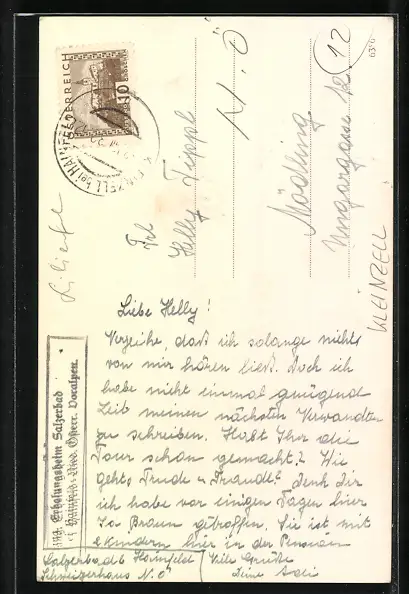 ÖSTERREICH
KLEINZELL bei HAINFELD
Frl
Helly Tippl
Mödling
Ungargasse 12
N. Ö
12
6396
Lilienfe
KLEINZELL
Erholungsheim Salzerbad
Hainfeld, Nied. Österr. Voralpen.
Liebe Helly!
Verzeihe, daß ich solange nichts
von mir hören ließ. Doch ich
habe nicht einmal genügend
Zeit meinen nächsten Verwandten
zu schreiben. Habt Ihr die
Tour schon gemacht? Wie
gehts Trude u Traudl? denk Dir
ich habe vor einigen Tagen hier
Braun getroffen. Sie ist mit
2 Kindern hier in der Pension
Salzerbad b Hainfeld
Schweizerhaus N. Ö
Viele Grüße
Deine